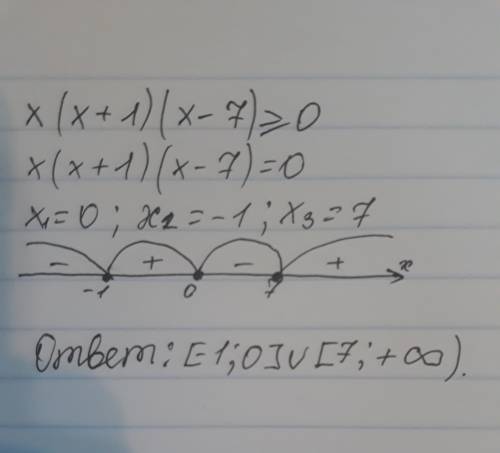 x(x+1)(x-7)⩾0
x(x+1)(x-7)=0
x₁=0; x₂=-1; x₃=7
- + - + x
-1 0 7
Ответ: [-1;0]∪[7;+∞).